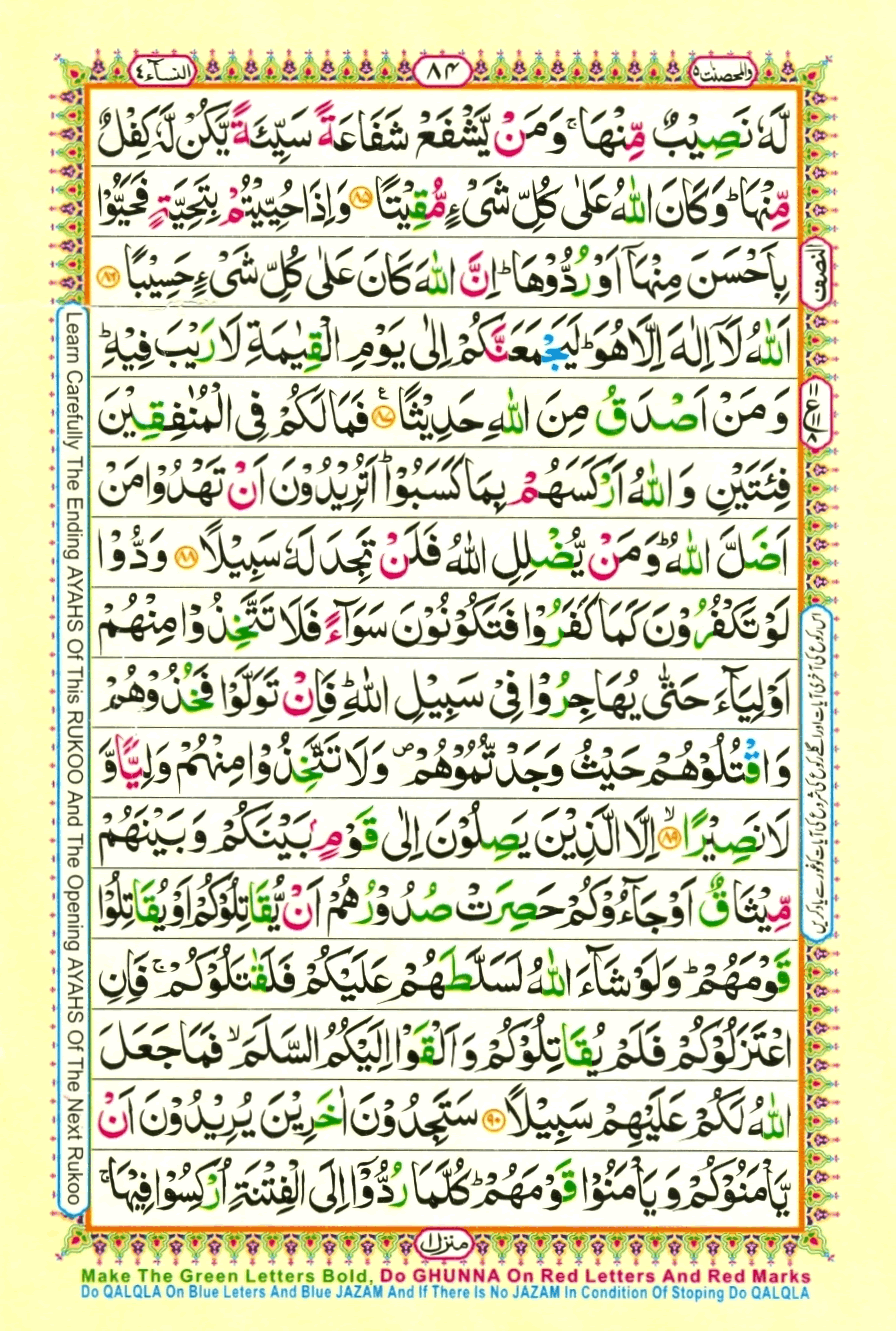 النسآء ٤
٨٤
والمحصنت ٥
لَّهٗ نَصِيْبٌ مِّنْهَا ۚ وَمَنْ يَّشْفَعْ شَفَاعَةً سَيِّئَةً يَّكُنْ لَّهٗ كِفْلٌ
مِّنْهَا ؕ وَكَانَ اللّٰهُ عَلٰى كُلِّ شَىْءٍ مُّقِيْتًا ﴿٨٥﴾ وَاِذَا حُيِّيْتُمْ بِتَحِيَّةٍ فَحَيُّوْا
بِاَحْسَنَ مِنْهَاۤ اَوْ رُدُّوْهَا ؕ اِنَّ اللّٰهَ كَانَ عَلٰى كُلِّ شَىْءٍ حَسِيْبًا ﴿٨٦﴾
اَللّٰهُ لَاۤ اِلٰهَ اِلَّا هُوَ ؕ لَيَجْمَعَنَّكُمْ اِلٰى يَوْمِ الْقِيٰمَةِ لَا رَيْبَ فِيْهِ ؕ
وَمَنْ اَصْدَقُ مِنَ اللّٰهِ حَدِيْثًا ﴿٨٧﴾ ع فَمَا لَكُمْ فِى الْمُنٰفِقِيْنَ
فِئَتَيْنِ وَاللّٰهُ اَرْكَسَهُمْ بِمَا كَسَبُوْا ؕ اَتُرِيْدُوْنَ اَنْ تَهْدُوْا مَنْ
اَضَلَّ اللّٰهُ ؕ وَمَنْ يُّضْلِلِ اللّٰهُ فَلَنْ تَجِدَ لَهٗ سَبِيْلًا ﴿٨٨﴾ وَدُّوْا
لَوْ تَكْفُرُوْنَ كَمَا كَفَرُوْا فَتَكُوْنُوْنَ سَوَآءً فَلَا تَتَّخِذُوْا مِنْهُمْ
اَوْلِيَآءَ حَتّٰى يُهَاجِرُوْا فِىْ سَبِيْلِ اللّٰهِ ؕ فَاِنْ تَوَلَّوْا فَخُذُوْهُمْ
وَاقْتُلُوْهُمْ حَيْثُ وَجَدْتُّمُوْهُمْ ۪ وَلَا تَتَّخِذُوْا مِنْهُمْ وَلِيًّا وَّ
لَا نَصِيْرًا ۙ﴿٨٩﴾ اِلَّا الَّذِيْنَ يَصِلُوْنَ اِلٰى قَوْمٍۭ بَيْنَكُمْ وَبَيْنَهُمْ
مِّيْثَاقٌ اَوْ جَآءُوْكُمْ حَصِرَتْ صُدُوْرُهُمْ اَنْ يُّقَاتِلُوْكُمْ اَوْ يُقَاتِلُوْا
قَوْمَهُمْ ؕ وَلَوْ شَآءَ اللّٰهُ لَسَلَّطَهُمْ عَلَيْكُمْ فَلَقٰتَلُوْكُمْ ۚ فَاِنِ
اعْتَزَلُوْكُمْ فَلَمْ يُقَاتِلُوْكُمْ وَاَلْقَوْا اِلَيْكُمُ السَّلَمَ ۙ فَمَا جَعَلَ
اللّٰهُ لَكُمْ عَلَيْهِمْ سَبِيْلًا ﴿٩٠﴾ سَتَجِدُوْنَ اٰخَرِيْنَ يُرِيْدُوْنَ اَنْ
يَّاْمَنُوْكُمْ وَيَاْمَنُوْا قَوْمَهُمْ ؕ كُلَّمَا رُدُّوْۤا اِلَى الْفِتْنَةِ اُرْكِسُوْا فِيْهَا ۚ
النصف
Learn Carefully The Ending AYAHS Of This RUKOO And The Opening AYAHS Of The Next Rukoo
اس رکوع کی آخری آیات اور اگلے رکوع کی شروع کی آیات کو غور سے یاد کریں
منزل ١
Make The Green Letters Bold, Do GHUNNA On Red Letters And Red Marks
Do QALQLA On Blue Leters And Blue JAZAM And If There Is No JAZAM In Condition Of Stoping Do QALQLA